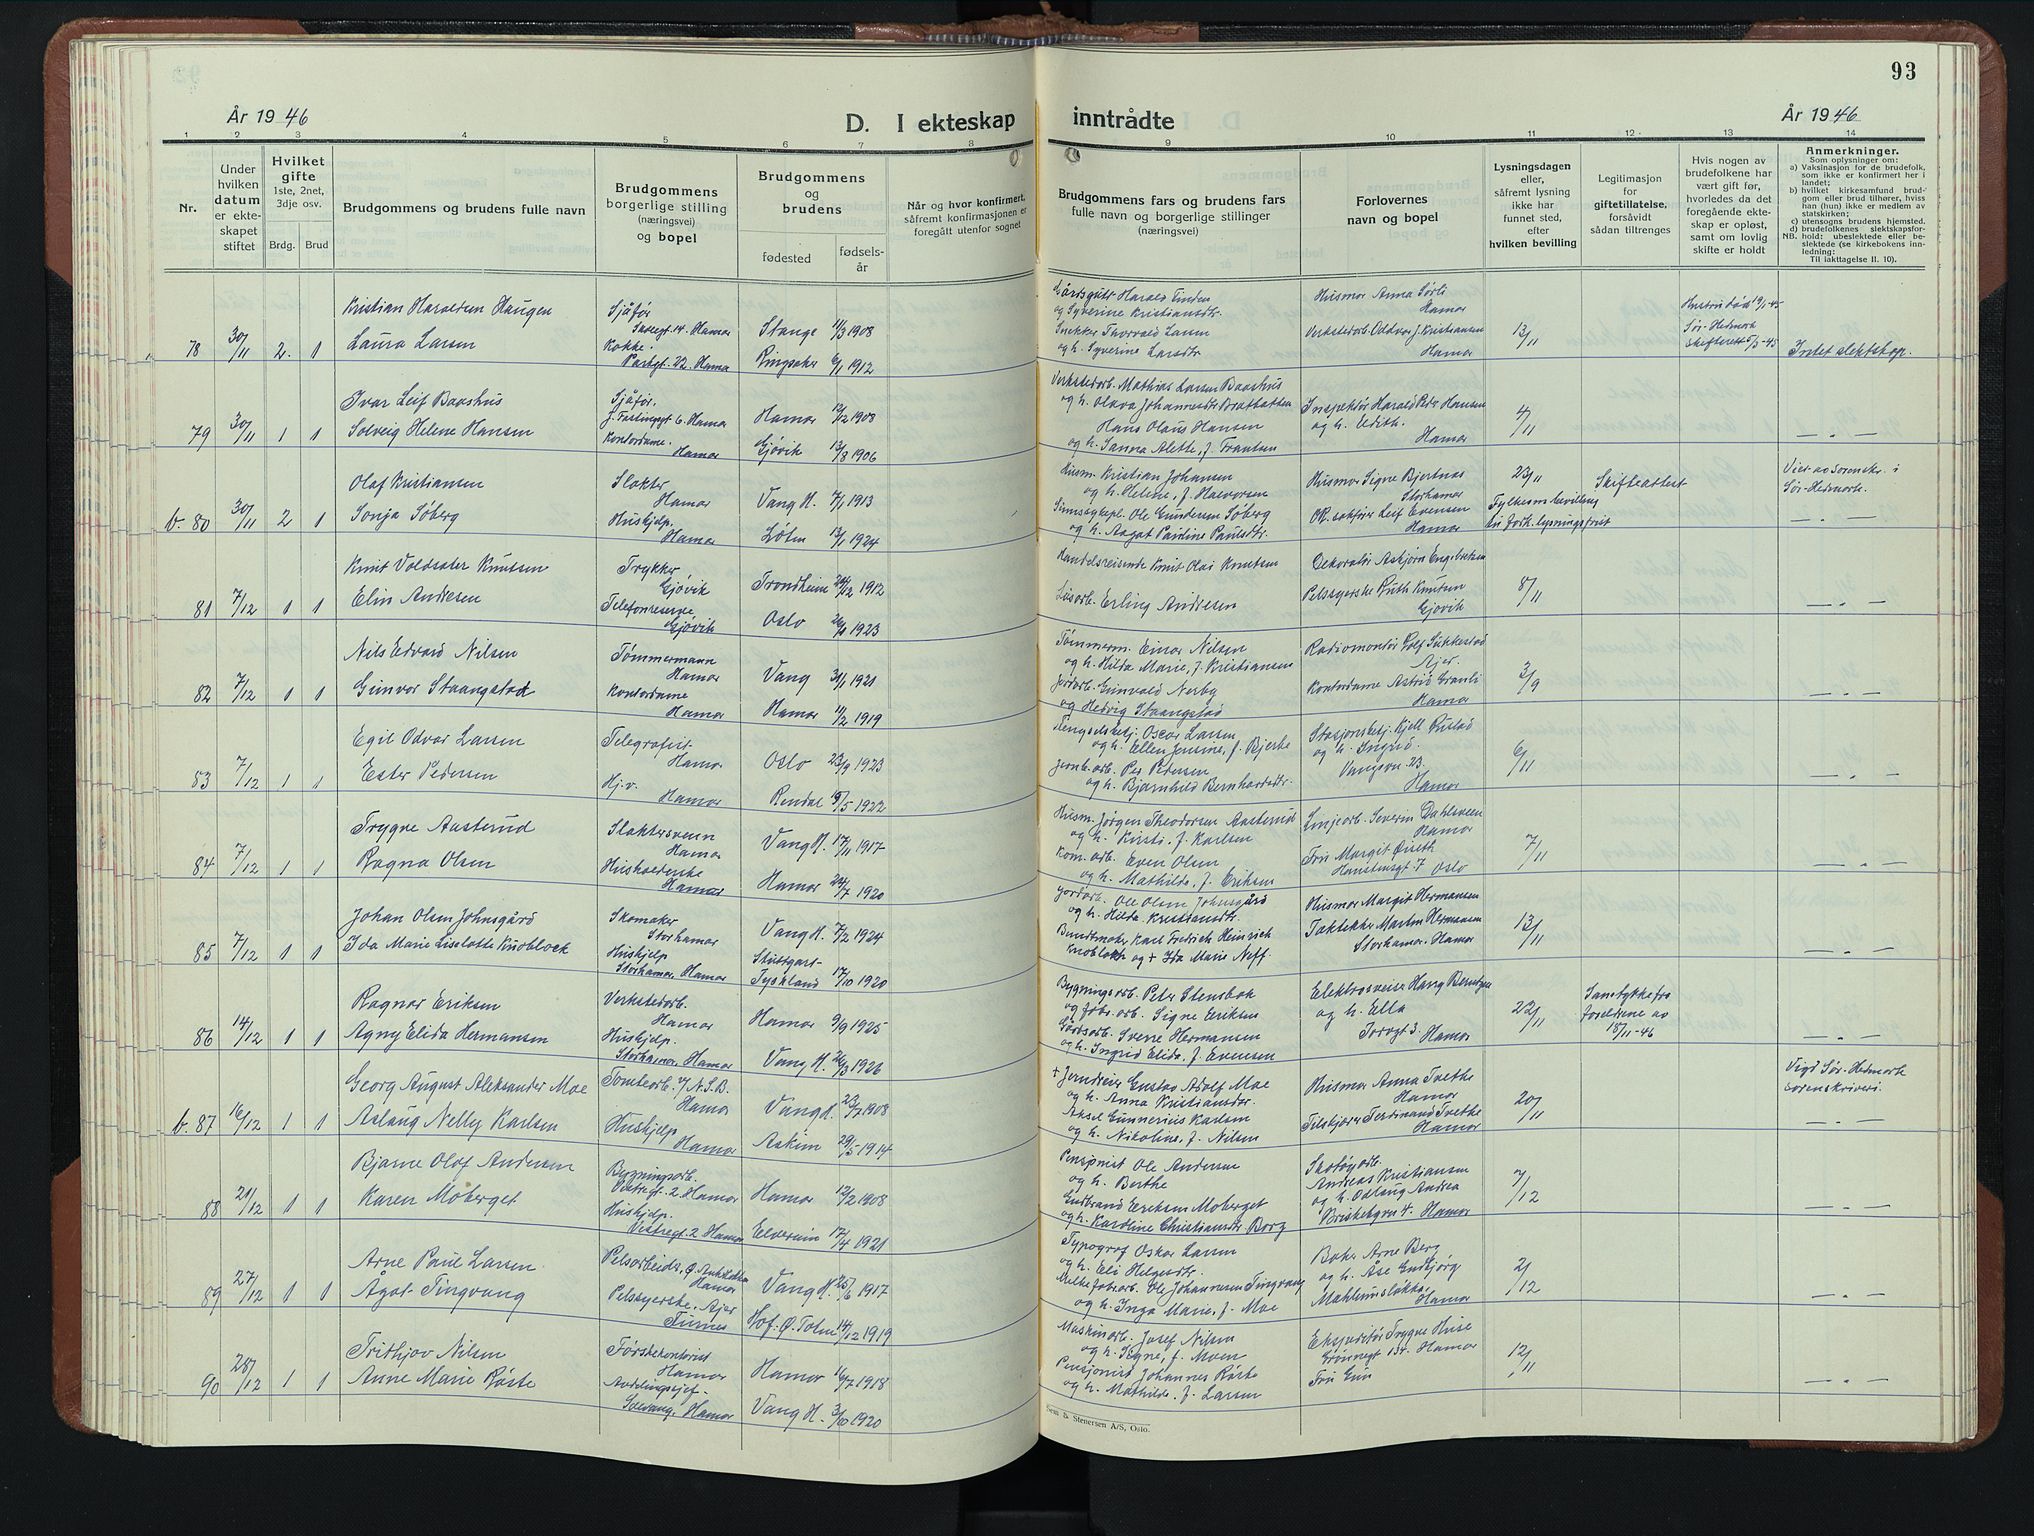 93
År 1946
D. I ekteskap
inntrådte
År 1946
1 2 3 4 5 6 7 8 9 10 11 12 13 14
Nr.
Under
hvilken
datum
er ekte-
skapet
stiftet
Hvilket
gifte
1ste, 2net,
3dje osv.
Brdg. Brud
Brudgommens og brudens fulle navn
Brudgommens
borgerlige stilling
(næringsvei)
og bopel
Brudgommens
og
brudens
fødested
fødsels-
år
Når og hvor konfirmert,
såfremt konfirmasjonen er
foregått utenfor sognet
Brudgommens fars og brudens fars
fulle navn og borgerlige stillinger
(næringsvei)
Forlovernes
navn og bopel
Lysningsdagen
eller,
såfremt lysning
ikke har
funnet sted,
efter
hvilken bevilling
Legitimasjon
for
giftetillatelse,
forsåvidt
sådan tiltrenges
Hvis nogen av
brudefolkene har
vært gift før,
hvorledes da det
foregående ekte-
skap er opløst,
samt om lovlig
skifte er holdt
Anmerkninger.
Som oplysninger om:
a) Vaksinasjon for de brudefolk,
som ikke er konfirmert her i
landet;
b) hvilket kirkesamfund brud-
gom eller brud tilhører, hviss
han (hun) ikke er medlem av
statskirken;
c) utensogns brudens hjemsted.
d) brudefolkenes slektskapsfor-
NB. hold: ubeslektede eller be-
slektede (se kirkebokens inn-
ledning:
Til iakttagelse II. 10).
78 30/11 2. 1
Kristian Haraldsen Haugen
Laura Larsen
Sjåfør
Skolegt. 14. Hamar
Kokke.
Parkgt. 22. Hamar
Stange 11/3 1908
Ringsaker 6/1 1912
Gårdsgutt Harald Finden
og Syverine Kristiansdtr.
Snekker Thorvald Larsen
og h. Syverine Larsdtr.
Husmor Anna Sørli
Hamar
Verkstedarb. Oddvar J. Kristiansen
Hamar
13/11
Hustru død 19/1-45
Sør-Hedmark
skifterett 5/3-45
Intet slektskap.
79 30/11 1 1
Ivar Leif Baashus
Solveig Helene Hansen
Sjåfør.
J. Fastingsgt 6. Hamar
Kontordame.
Hamar
Hamar 12/2 1908
Gjøvik 13/8 1906
Verkstedarb. Mathias Larsen Baashus
og h. Olava Johannesdtr Bratbakken
Hans Olaus Hansen
og h. Sanna Alette, f. Frantsen
Inspektør Harald Petr Hansen
og h. Edith.
Hamar
4/11
— „ —
b. 80 30/11 2 1
Olaf Kristiansen
Sonja Søberg
Slakter
Hamar
Hushjelp.
Hamar
Vang H. 7/1 1913
Løten 13/1 1924
Husm. Kristian Johansen
og h. Helene, f. Halvorsen
Ole Gundersen Søberg
og h. Aagot Pauline Paulsdtr.
Husmor Signe Bjertnæs
Storhamar
Leif Evensen
Hamar
23/11
Fylkesm. bevilling
lysningsfrist
Skifteattest
Viet av sorenskr. i
Sør-Hedmark.
— „ —
81 7/12 1 1
Knut Voldsæter Knutsen
Elin Andresen
Trykker
Gjøvik
Telefonreserve
Gjøvik
Trondheim 24/12 1912
Oslo 1923
Handelsreisende Knut Olai Knutsen
Løsarb. Erling Andresen
Dekoratør Asbjørn Engebretsen
Pelssyerske Ruth Knutsen
Gjøvik
8/11
— „ —
82 7/12 1 1
Nils Edvard Nilsen
Gunvor Staangstad
Tømmermann
Hamar
Kontordame
Hamar
Vang 31/1 1921
Hamar 11/2 1919
Tømmerm. Einar Nilsen
og h. Hilda Marie, f. Kristiansen
Jordarb. Gunvald Narby
og Hedvig Staangstad
Radiomontør Rolf Sukkestad
Ajer.
Kontordame Astrid Granli
Hamar
3/9
— „ —
83 7/12 1 1
Egil Odvar Larsen
Ester Pedersen
Telegrafist.
Hamar
Hj.v.
Hamar
Oslo 23/9 1923
Rendal 9/5 1922
Fengselsbetj. Oscar Larsen
og h. Ellen Jensine, f. Bjerke
Jernb.arb. Per Pedersen
og h. Bjarnhild Bernhardsdtr.
Stasjonsbetj. Kjell Rustad
og h. Ingrid.
Vangsvn. 23.
Hamar
6/11
— „ —
84 7/12 1 1
Trygve Aasterud
Ragna Olsen
Slaktersvenn
Hamar
Husholderske
Hamar
Vang H. 17/11 1917
Hamar 24/7 1920
Husm. Jørgen Theodorsen Aasterud
og h. Kristi, f. Karlsen
Kom.arb. Even Olsen
og h. Mathilde, f. Eriksen
Linjearb. Severin Dahlsveen
Hamar
Fru Margit Øiseth
Hansteensgt 7 Oslo
7/11
— „ —
85 7/12 1 1
Johan Olsen Johnsgård
Ida Marie Liselotte Knoblock
Skomaker
Storhamar
Hushjelp
Storhamar, Hamar
Vang H. 7/2 1924
Stuttgart-
Tyskland 17/10 1920
Jordarb. Ole Olsen Johnsgård
og h. Hilda Kristiansdtr.
Buntmaker Karl Fredrich Heinrich
Knoblock og + Ida Marie Neff.
Husmor Margit Hermansen
Taktekker Martin Hermansen
Storhamar. Hamar
13/11
— „ —
86 14/12 1 1
Ragnar Eriksen
Agny Elida Hermansen
Verkstedarb.
Hamar
Hushjelp.
Storhamar, Hamar
Hamar 9/9 1925
Vang H. 26/3 1926
Bygningsarb. Peter Stensbak
og fabr.arb. Signe Eriksen
Gårdsarb. Sverre Hermansen
og h. Ingrid Elida, f. Evensen
Elektrosveiser Hans Berntsen
og h. Ella
Torvgt 3. Hamar
22/11
Samtykke fra
foreldrene av
15/11-46
— „ —
b. 87 16/12 1 1
Georg August Aleksander Moe
Aslaug Nelly Karlsen
Tomtearb. v/ N.S.B.
Hamar
Hushjelp
Hamar
Vang H. 23/7 1908
Askim 29/5-1914
+ Jerndreier Gustav Adolf Moe
og h. Anna Kristiansdtr.
Aksel Gunnerius Karlsen
og h. Nikoline, f. Nilsen
Husmor Anna Tvethe
Hamar
Filskjører Ferdinand Tvethe
Hamar
20/11
Vigd Sør-Hedmark
sorenskriveri.
— „ —
88 21/12 1 1
Bjarne Olaf Andersen
Karen Moberget
Bygningsarb.
Vestregt. 2 Hamar
Hushjelp.
Vestregt. 2 Hamar
Hamar 12/2 1908
Elverum 17/4 1921
Pensjonist Ole Andersen
og h. Berthe
Gudbrand Eriksen Moberget
og h. Karoline Christiansdtr. Borg
Skotøyarb.
Andreas Kristiansen
og h. Oslaug Andrea
Briskebyvn 4. Hamar
7/12
89 27/12 1 1
Arne Paul Larsen
Ågot Tingvang
Pelsarbeider,
Hamar
Pelssyerske, Ajer
Furnes
Vang H. 25/6 1917
Hof. Ø. Toten 14/12 1919
Typograf Oskar Larsen
og h. Eli Helgesdtr.
Melkefabr.arb. Ole Johannesen Tingvang
og h. Inga Marie, f. Moe
Baker Arne Berg
og h. Åse Gudbjørg
Mahlumsløkka.
Hamar
2/12
— „ —
90 28/12 1 1
Frithjov Nilsen
Anne Marie Røste
Førstekontorist
Hamar
Avdelingssjef-
Solvang, Hamar
Hamar 16/7 1918
Vang H. 3/10 1920
Maskinarb. Josef Nilsen
og h. Signe, f. Moen
Pensjonist Johannes Røste
og h. Mathilde, f. Larsen
Ekspeditør Trygve Huse
Grønnegt 134. Hamar
Fru Gun
12/11
— „ —
Sem & Stenersen A/S, Oslo.